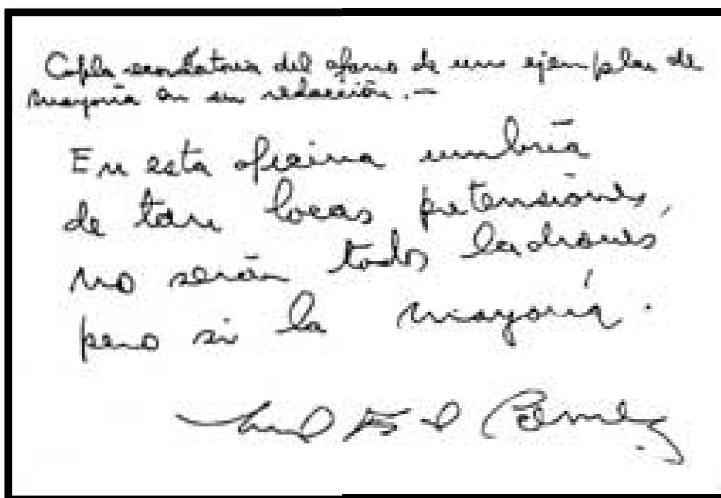 Copla                del afano de un ejemplar de
mayoría en su redacción.—
En esta oficina umbría
de tan locas pretensiones,
no serán todos ladrones
pero si la mayoría.